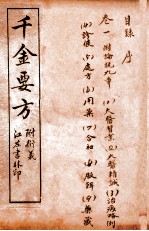 目錄 序
卷一 附論就九章
(1)大醫習業(2)大醫精誠(3)治病略例
(4)診候(5)處方(6)用藥(7)合和(8)服餌(9)藥藏
千金要方
附衍義
江左書林印